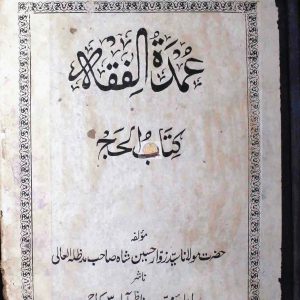 عمدۃ الفقہ
کتاب الحج
مؤلفہ
حضرت مولانا سید زوار حسین شاہ صاحب مدظلہ العالی
ناشر